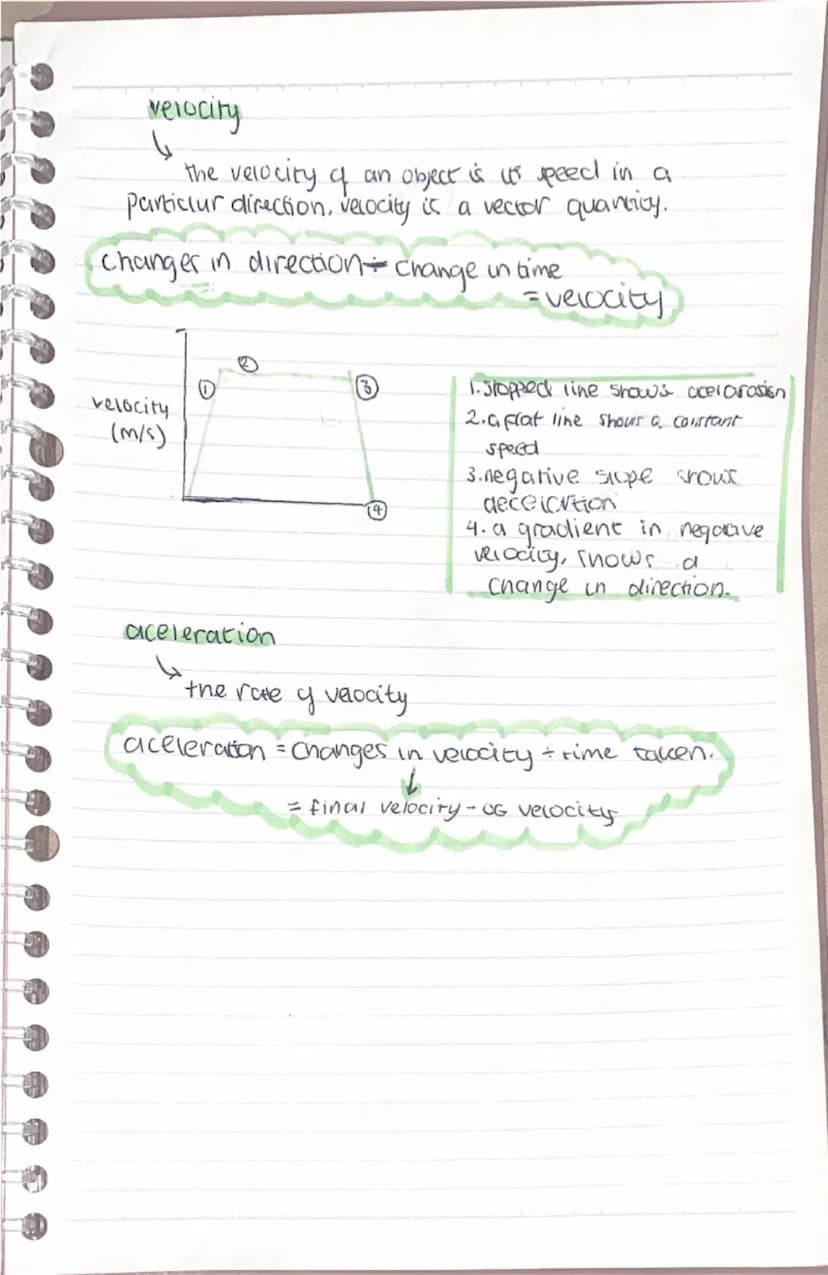 velocity
↳ the velocity of an object is its speed in a
particlur direction, velocity is a vector quantity.
changes in direction ÷ change in time
= velocity
velocity
(m/s)
①
②
③
④
1. slopped line shows acelaration
2. a flat line shows a constant
speed
3. negative slope shows
decelartion
4. a gradient in negative
velocity, shows a
change in direction.
aceleration
↳ the rate of velocity
aceleration = changes in velocity ÷ time taken.
↓
= final velocity - OG velocity